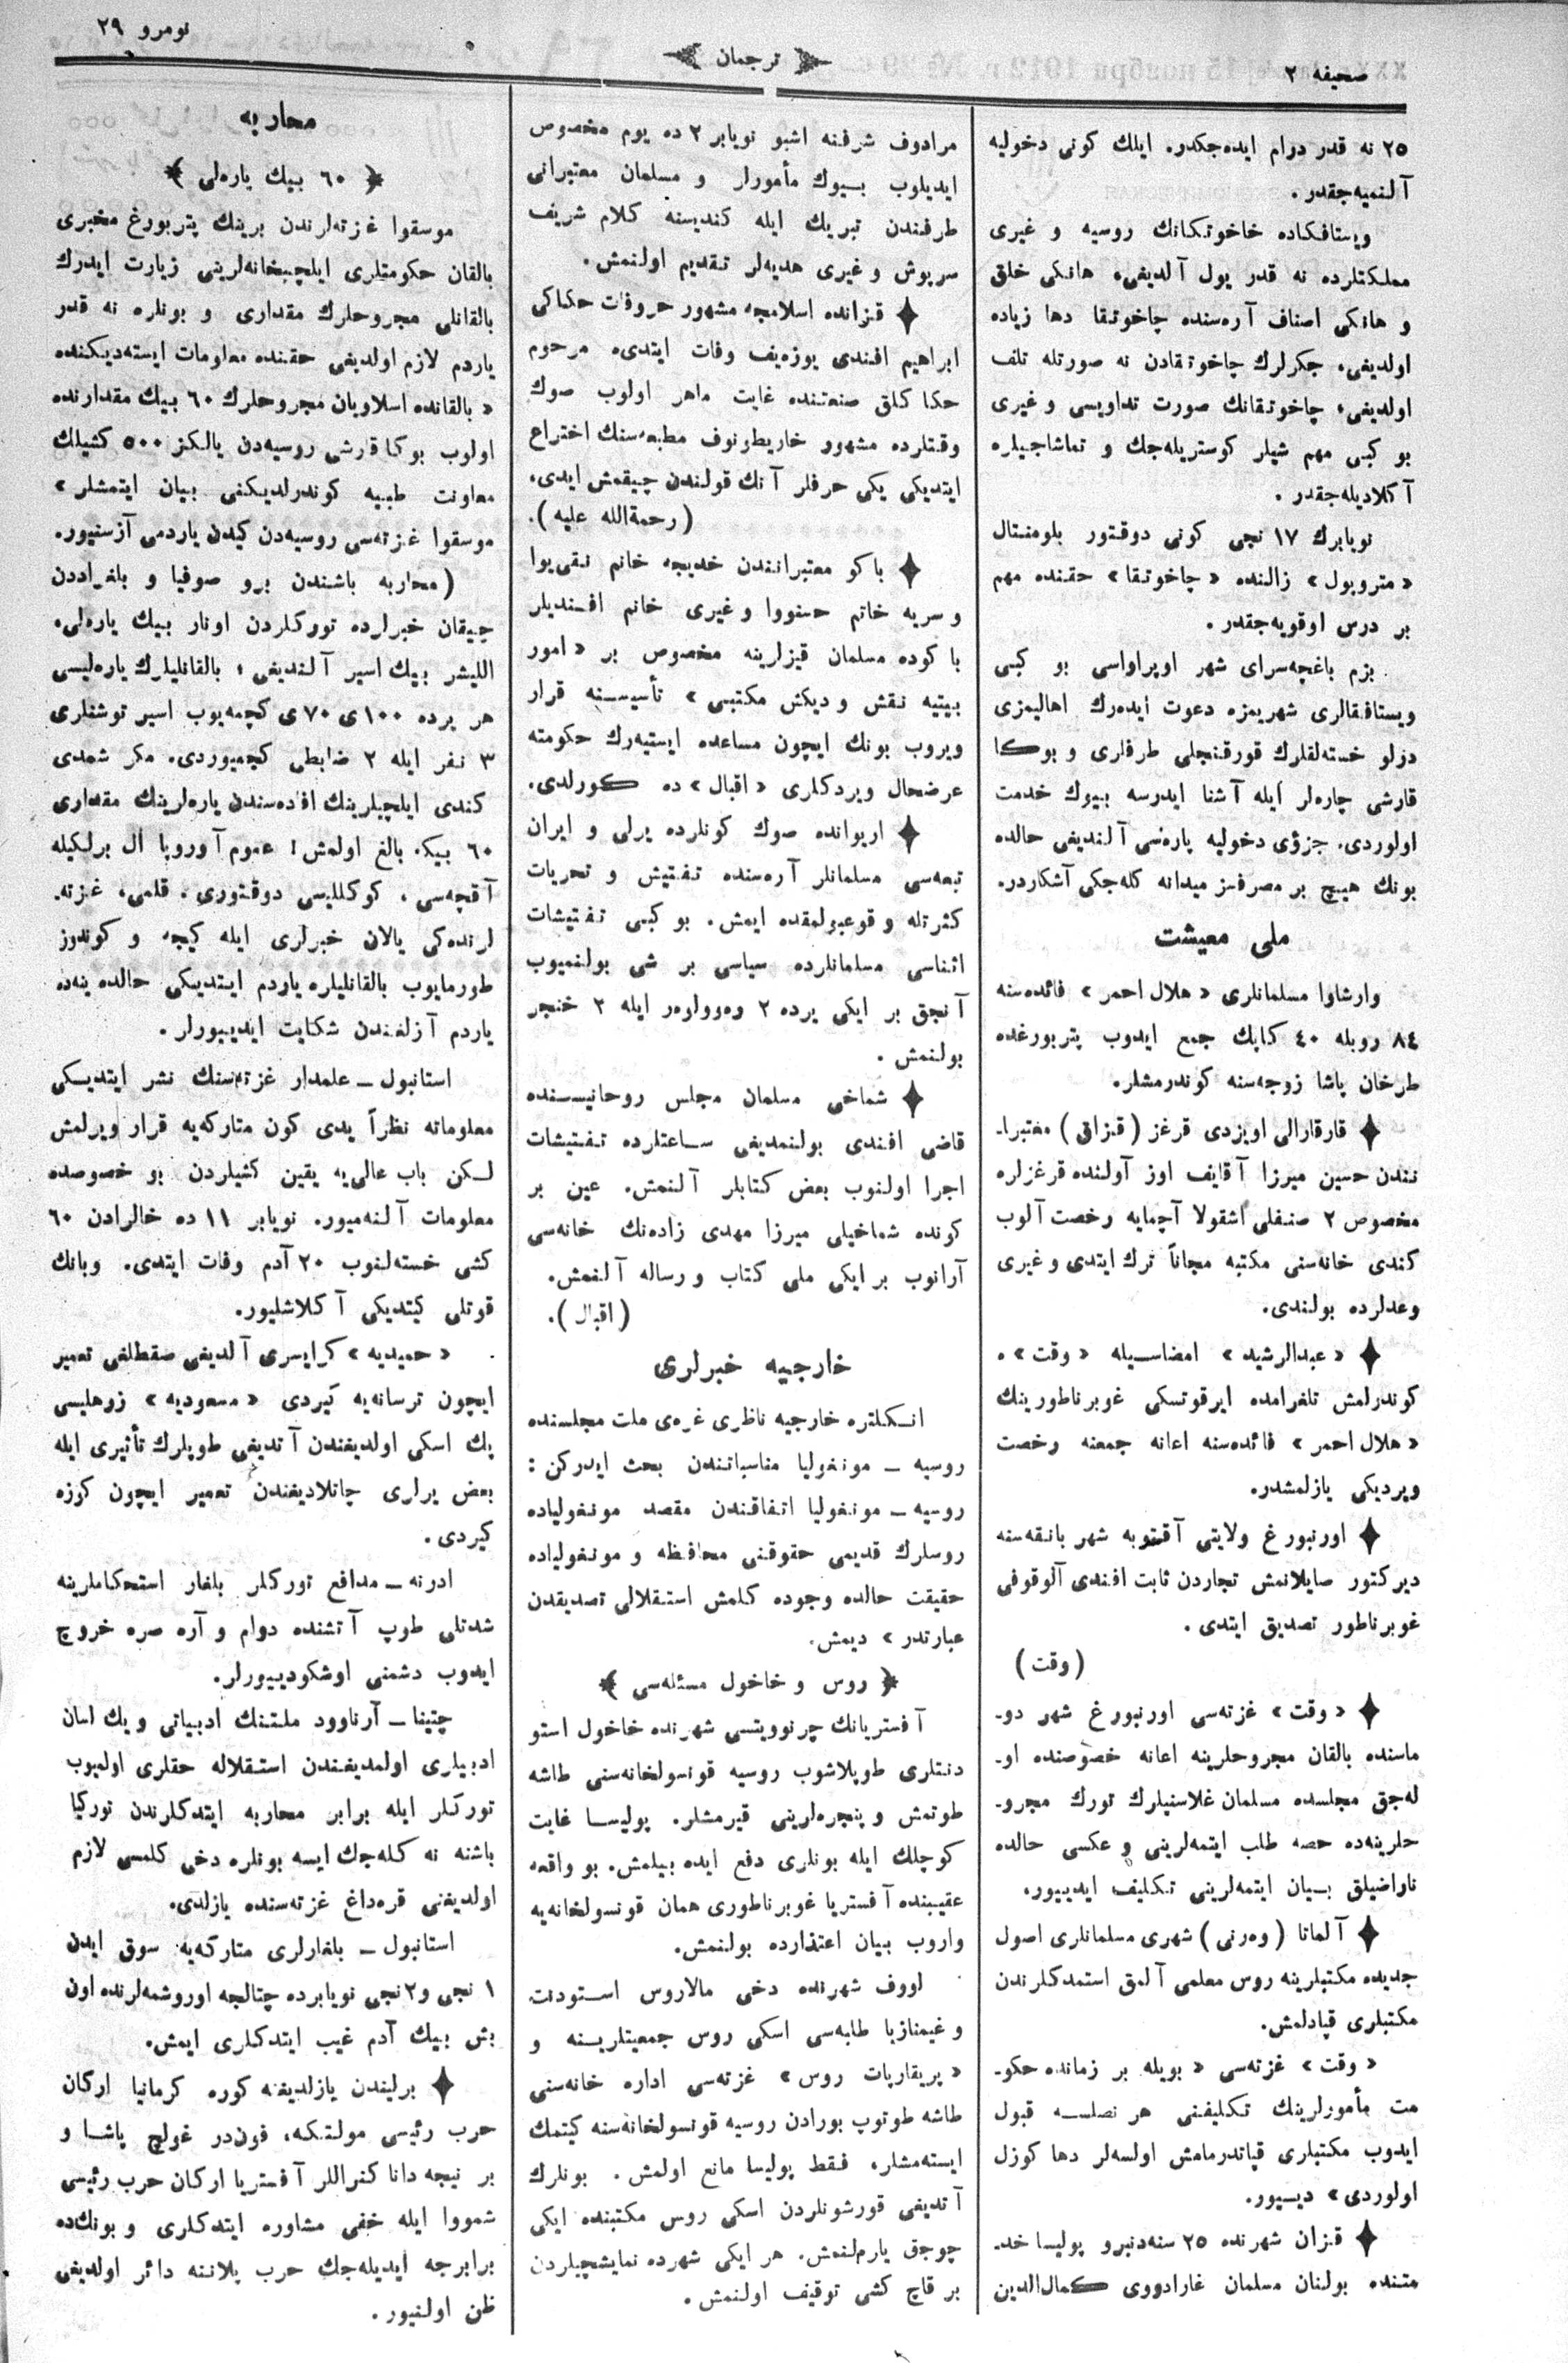 صحیفه ۲
ترجمان
نومرو ۲۹
۲۵ نه قدر درام ایده‌جکدر. ایلك كونى دخولیه
آلنمیه‌جقدر.
ویستافکاده خاخوتکانك روسیه و غیری
مملکتلرده نه قدر یول آلدیغی، هانکی خلق
و هانکی اصناف آره‌سنده چاخوتقا دها زیاده
اولدیغی، جکرلرك چاخوتقادن نه صورتله تلف
اولدیغی، چاخوتقانك صورت تداویسی و غیری
بو کبی مهم شیلر کوستریله‌جك و تماشاجیلره
آکلادیله‌جقدر.
نویابرك ۱۷ نجی کونی دوقتور بلومنتال
«متروپول» زالنده «چاخوتقا» حقنده مهم
بر درس اوقویه‌جقدر.
بزم باغچه‌سرای شهر اوپراواسی بو کبی
ویستافقالری شهریمزه دعوت ایده‌رك اهالیمزی
دزلو خسته‌لقلرك قورقنچلی طرفلری و بوکا
قارشی چاره‌لر ایله آشنا ایدرسه بیوك خدمت
اولوردی. جزؤی دخولیه پاره‌سی آلندیغی حالده
بونك هیچ بر مصرفسز میدانه کله‌جکی آشکاردر.
ملی معیشت
وارشاوا مسلمانلری «هلال احمر» فائده‌سنه
۸٤ روبله ٤۰ کاپك جمع ایدوب پتربورغده
طرخان پاشا زوجه‌سنه کوندرمشلر.
قارقارالی اویزدی قرغز (قزاق) معتبرا-
نندن حسین میرزا آقایف اوز آولنده قرغزلره
مخصوص ۲ صنفلی اشقولا آچمایه رخصت آلوب
کندی خانه‌سنی مکتبه مجاناً ترك ایتدی و غیری
وعدلرده بولندی.
«عبدالرشید» امضاسیله «وقت» ه
کوندرلمش تلغرامده ایرقوتسکی غوبرناطورینك
«هلال احمر» فائده‌سنه اعانه جمعنه رخصت
ویردیکی یازلمشدر.
اورنبورغ ولایتی آقتوبه شهر بانقه‌سنه
دیرکتور صایلانمش تجاردن ثابت افندی آلوقوفی
غوبرناطور تصدیق ایتدی.
(وقت)
«وقت» غزته‌سی اورنبورغ شهر دو-
ماسنده بالقان مجروحلرینه اعانه خصوصنده او-
له‌جق مجلسده مسلمان غلاسنیلرك تورك مجرو-
حلرینه‌ده حصه طلب ایتمه‌لرینی و عکسی حالده
ناراضیلق بیان ایتمه‌لرینی تکلیف ایدییور.
آلماتا (وه‌رنی) شهری مسلمانلری اصول
جدیده مکتبلرینه روس معلمی آلمق استمدکلرندن
مکتبلری قپادلمش.
«وقت» غزته‌سی «بویله بر زمانده حکو-
مت مأمورلرینك تکلیفنی هر نصلسه قبول
ایدوب مکتبلری قپاندرمامش اولسه‌لر دها کوزل
اولوردی» دیییور.
قزان شهرنده ۲۵ سنه‌دنبرو پولیسا خد-
متنده بولنان مسلمان غارادووی کمال‌الدین
مرادوف شرفنه اشبو نویابر ۲ ده یوم مخصوص
ایدیلوب بیوك مأمورلر و مسلمان معتبرانی
طرفندن تبریك ایله کندیسنه کلام شریف
سرپوش و غیری هدیه‌لر تقدیم اولنمش.
قزانده اسلامجه مشهور حروفات حکاکی
ابراهیم افندی یوزه‌یف وفات ایتدی، مرحوم
حکاکلق صنعتنده غایت ماهر اولوب صوك
وقتلرده مشهور خاریطونوف مطبعه‌سنك اختراع
ایتدیکی یکی حرفلر آنك قولندن چیقمش ایدی.
(رحمةالله علیه).
باکو معتبرانندن خدیجه خانم نقی‌یوا
و سریه خانم حسنووا و غیری خانم افندیلر
باکوده مسلمان قیزلرینه مخصوص بر «امور
بیتیه نقش و دیکش مکتبی» تأسیسنه قرار
ویروب بونك ایچون مساعده ایستیه‌رك حکومته
عرضحال ویردکلری «اقبال» ده کورلدی.
اریوانده صوك کونلرده یرلی و ایران
تبعه‌سی مسلمانلر آره‌سنده تفتیش و تحریات
کثرتله وقوعبولمقده ایمش. بو کبی تفتیشات
اثناسی مسلمانلرده سیاسی بر شی بولنمیوب
آنجق بر ایکی یرده ۲ وه‌وولوه‌ر ایله ۲ خنجر
بولنمش.
شماخی مسلمان مجلس روحانیسنده
قاضی افندی بولنمدیغی ساعتلرده تفتیشات
اجرا اولنوب بعض کتابلر آلنمش. عین بر
کونده شماخیلی میرزا مهدی زاده‌نك خانه‌سی
آرانوب بر ایکی ملی کتاب و رساله آلنمش.
(اقبال).
خارجیه خبرلری
انکلتره خارجیه ناظری غره‌ی ملت مجلسنده
روسیه ــ مونغولیا مناسباتندن بحث ایدرکن:
روسیه ــ مونغولیا اتفاقندن مقصد مونغولیاده
روسلرك قدیمی حقوقنی محافظه و مونغولیاده
حقیقت حالده وجوده کلمش استقلالی تصدیقدن
عبارتدر» دیمش.
روس و خاخول مسئله‌سی
آفستریانك چرنوویتسی شهرنده خاخول استو
دنتلری طوپلاشوب روسیه قونسولخانه‌سنی طاشه
طوتمش و پنچره‌لرینی قیرمشلر. پولیسا غایت
کوچلك ایله بونلری دفع ایده بیلمش. بو واقعه
عقیبنده آفستریا غوبرناطوری همان قونسولخانه‌یه
واروب بیان اعتذارده بولنمش.
لووف شهرنده دخی مالاروس استودنت
و غیمنازیا طلبه‌سی اسکی روس جمعیتلرینه و
«پریقارپات روس» غزته‌سی اداره خانه‌سنی
طاشه طوتوپ بورادن روسیه قونسولخانه‌سنه کیتمك
ایسته‌مشلر، فقط پولیسا مانع اولمش. بونلرك
آتدیغی قورشونلردن اسکی روس مکتبنده ایکی
چوجق یارەلنمش. هر ایکی شهرده نمایشچیلردن
بر قاچ کشی توقیف اولنمش.
محاربه
۶۰ بیك یاره‌لی
موسقوا غزته‌لرندن برینك پتربورغ مخبری
بالقان حکومتلری ایلچیخانه‌لرینی زیارت ایدرك
بالقانلی مجروحلرك مقداری و بونلره نه قدر
یاردم لازم اولدیغی حقنده معلومات ایسته‌دیکنده
«بالقانده اسلاویان مجروحلرك ۶۰ بیك مقدارنده
اولوب بوکا قارشی روسیه‌دن یالکز ۵۰۰ کشیلك
معاونت طبیه کوندرلدیکنی بیان ایتمشلر»
موسقوا غزته‌سی روسیه‌دن کیدن یاردمی آزسنیور.
(محاربه باشندن برو صوفیا و بلغراددن
چیقان خبرلرده تورکلردن اونار بیك یاره‌لی،
اللیشر بیك اسیر آلندیغی؛ بالقانلیلرك یاره‌لیسی
هر یرده ۱۰۰ی ۷۰ی کچمه‌یوب اسیر توشنلری
۳ نفر ایله ۲ ضابطی کچمیوردی. مکر شمدی
کندی ایلچیلرینك افاده‌سندن یاره‌لرینك مقداری
۶۰ بیکه بالغ اولمش! عموم آوروپا ال برلکیله
آقچه‌سی، کوکللیسی دوقتوری، قلمی، غزته-
لرنده‌کی یالان خبرلری ایله کیجه و کوندوز
طورمایوب بالقانلیلره یاردم ایتدیکی حالده ینه‌ده
یاردم آزلغندن شکایت ایدییورلر.
استانبول ــ علمدار غزته‌سنك نشر ایتدیکی
معلوماته نظراً یدی کون متارکه‌یه قرار ویرلمش
لکن باب عالی‌یه یقین کشیلردن بو خصوصده
معلومات آلنه‌میور. نویابر ۱۱ ده خالرادن ۶۰
کشی خسته‌لنوب ۲۰ آدم وفات ایتدی. وبانك
قوتلی کیتدیکی آکلاشلیور.
«حمیدیه» کرایسری آلدیغی صقطلغی تعمیر
ایچون ترسانه‌یه کیردی «مسعودیه» زرهلیسی
پك اسکی اولدیغندن آتدیغی طوپلرك تأثیری ایله
بعض یرلری چاتلادیغندن تعمیر ایچون کوزه
کیردی.
ادرنه ــ مدافع تورکلر بلغار استحکاملرینه
شدتلی طوپ آتشنده دوام و آره صره خروج
ایدوب دشمنی اوشکودییورلر.
چتینا ــ آرناوود ملتنك ادبیاتی و پك اسان
ادبیلری اولمدیغندن استقلاله حقلری اولمیوب
تورکلر ایله برابر محاربه ایتدکلرندن تورکیا
باشنه نه کله‌جك ایسه بونلره دخی کلمسی لازم
اولدیغنی قره‌داغ غزته‌سنده یازلدی.
استانبول ــ بلغارلری متارکه‌یه سوق ایدن
۱ نجی و۲ نجی نویابرده چتالجه اوروشمه‌لرنده اون
بش بیك آدم غیب ایتدکلری ایمش.
برلیندن یازلدیغنه کوره کرمانیا ارکان
حرب رئیسی مولتکه، فون‌در غولچ پاشا و
بر نیجه دانا کنراللر آفستریا ارکان حرب رئیسی
شمووا ایله خفی مشاوره ایتدکلری و بونك‌ده
برابرجه ایدیله‌جك حرب پلاننه دائر اولدیغی
ظن اولنیور.